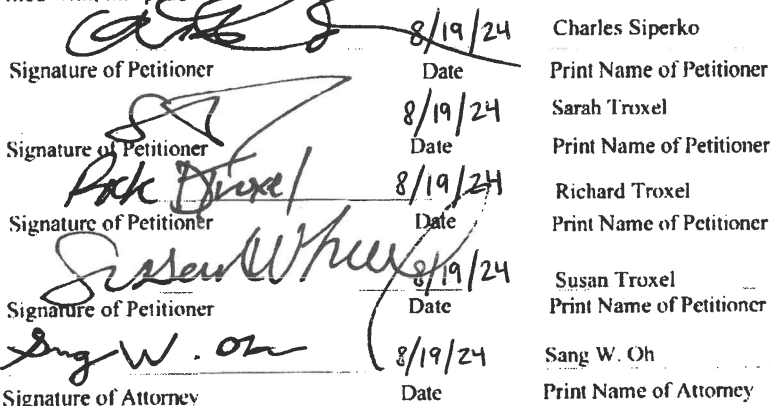 8/19/24 Charles Siperko
Signature of Petitioner Date Print Name of Petitioner
8/19/24 Sarah Troxel
Signature of Petitioner Date Print Name of Petitioner
Troxel 8/19/24 Richard Troxel
Signature of Petitioner Date Print Name of Petitioner
Susan 8/19/24 Susan Troxel
Signature of Petitioner Date Print Name of Petitioner
Sang W. Oh 8/19/24 Sang W. Oh
Signature of Attorney Date Print Name of Attorney